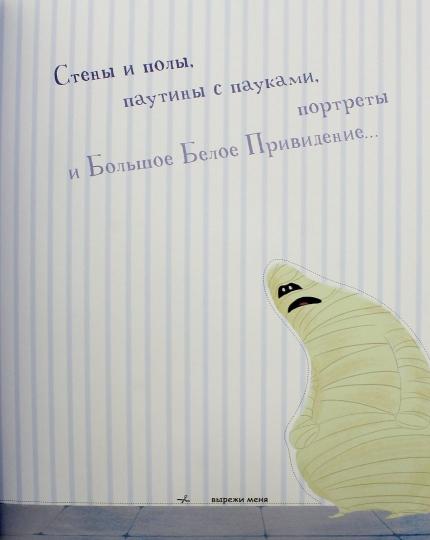 Стены и полы,
паутины с пауками,
портреты
и Большое Белое Привидение...
вырежи меня